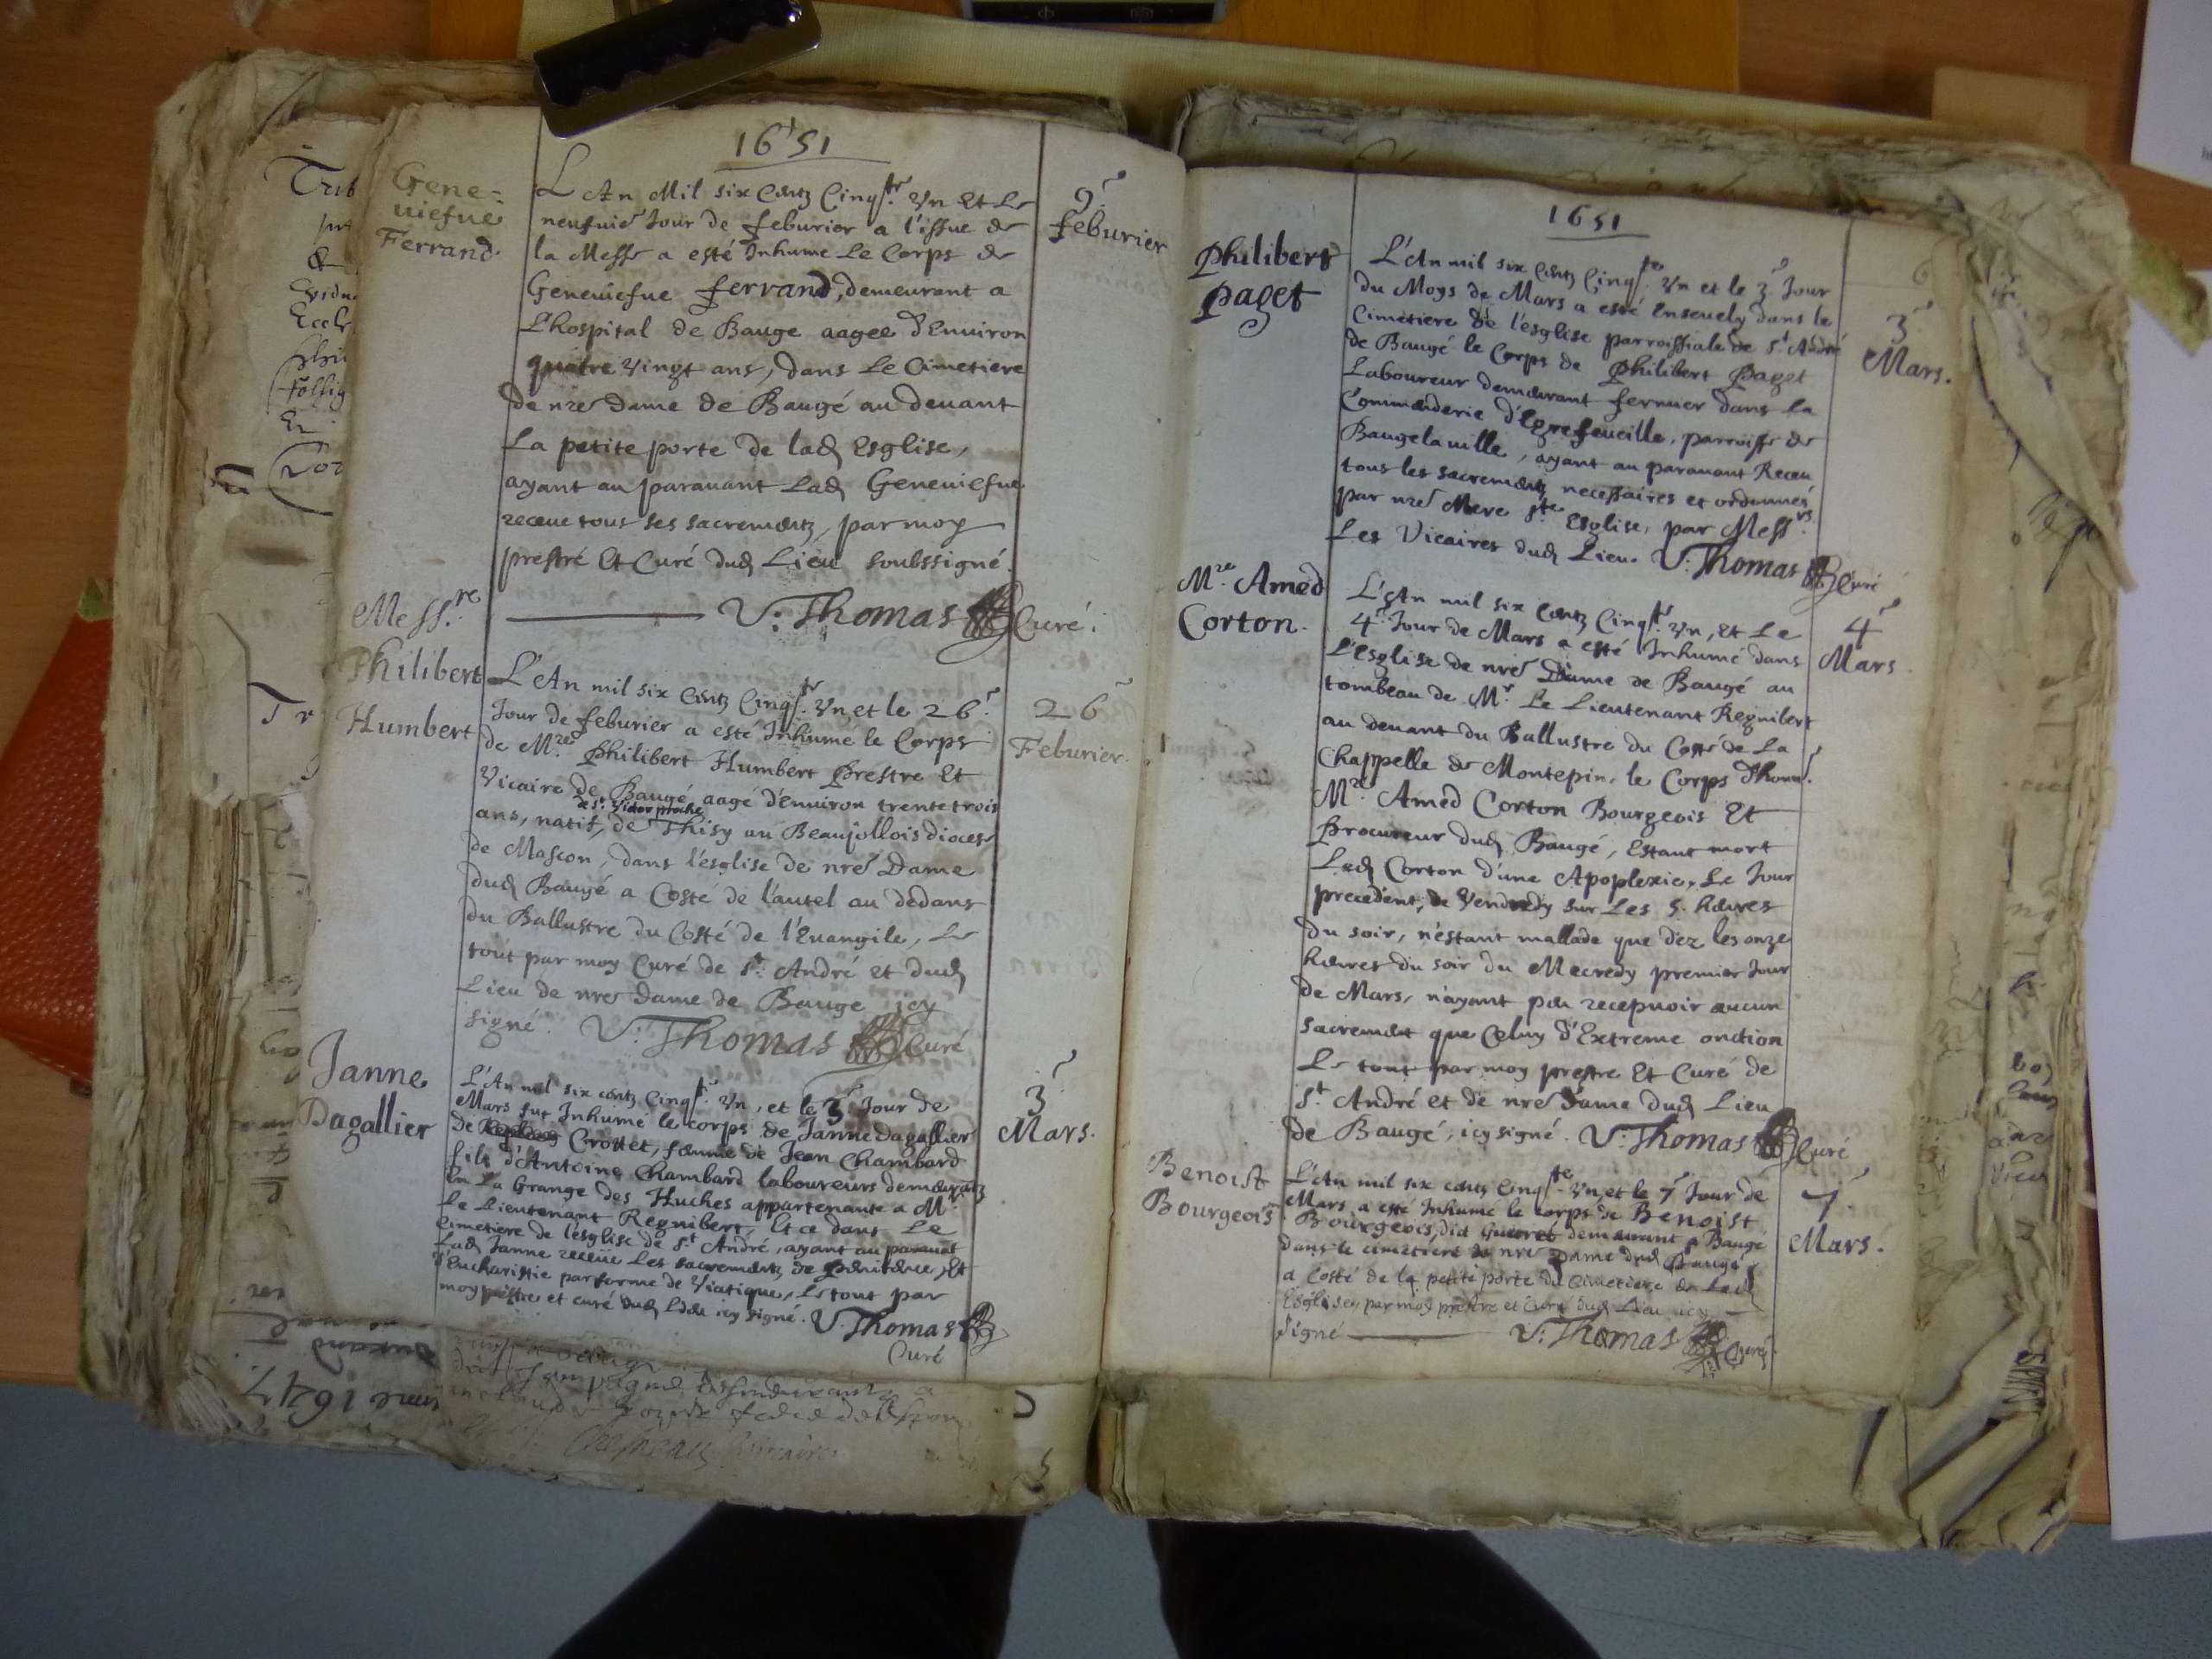 1651
Gene-
uiefue
Ferrand.
9e
feburier
L'An Mil six Centz Cinqte Vn Et Le
neufuie Jour de feburier a l'issue de
la Messe a esté Inhumé Le Corps de
Geneuiefue ferrand, demeurant a
L'hospital de Bauge aagee d'Enuiron
quatre Vingt ans, dans Le Cimetiere
de nre Dame de Baugé au deuant
La petite porte de lad Esglise,
ayant au parauant Lad Geneuiefue
receue tous ses sacrementz, par moy
prestre Et Curé dud Lieu soubssigné.
V. Thomas Curé.
Messre
Philibert
Humbert
26e
Feburier.
L'An mil six Centz Cinqte Vn, et le 26e
Jour de feburier a esté Inhumé le Corps
de Mre Philibert Humbert Prestre Et
Vicaire de Baugé aagé d'Enuiron trente trois
de St Victor proche
ans, natif, de Thisy au Beaujollois diocese
de Mascon, dans l'esglise de nre Dame
dud Baugé a Costé de l'autel au dedans
du Ballustre du Costé de l'Euangile, Le
tout par moy Curé de St André et dud
Lieu de nre Dame de Bauge icy
signé. V. Thomas Curé
Janne
Dagallier
3e
Mars.
L'An mil six centz Cinqte Vn, et le 3e Jour de
Mars fut Inhumé le corps de Janne dagallier
de Crottet, femme de Jean Chambard
fils d'Antoine Chambard laboureurs demeurantz
En La Grange des Huches appartenante a Mr
Le Lieutenant Regnibert, Et ce dans Le
Cimetiere de l'esglise de St André, ayant au parauant
Lad Janne receüe Les sacrementz de Penitence, Et
d'Eucharistie par forme de Viatique, Le tout par
moy prestre et curé dud Lieu icy signé. V. Thomas
Curé
1651
Philibert
Paget
3e
Mars.
L'An mil six Centz Cinqte Vn et le 3e Jour
du Moys de Mars a esté Enseuely dans le
Cimetiere de l'esglise parroissiale de St André
de Baugé le Corps de Philibert Paget
Laboureur demeurant fermier dans La
Commanderie d'Egrefeueille, parroisse de
Baugelauille, ayant au parauant Receu
tous les sacrementz necessaires et ordonnes
par nre Mere Ste Esglise, par Messrs
Les Vicaires dud Lieu. V. Thomas Curé
Mre Amed
Corton.
4e
Mars.
L'An mil six Centz Cinqte Vn, Et Le
4e Jour de Mars a esté Inhumé dans
L'Esglise de nre Dame de Baugé au
tombeau de Mr Le Lieutenant Regnibert
au deuant du Ballustre du Costé de La
Chappelle de Montepin, le Corps d'honne
Mre Amed Corton Bourgeois Et
Procureur dud Baugé, Estant mort
Led Corton d'une Apoplexie, Le Jour
precedent, de Vendredy sur Les 5. heures
du soir, n'estant mallade que dez les onze
heures du soir du Mecredy premier Jour
de Mars, n'ayant peu recepuoir aucun
sacrement que Celuy d'Extreme onction
Le tout par moy prestre Et Curé de
St André et de nre Dame dud Lieu
de Baugé, icy signé. V. Thomas Curé
Benoist
Bourgeois
7e
Mars.
L'An mil six centz cinqte Vn, et le 7e Jour de
Mars a esté Inhumé le corps de Benoist
Bourgeois, dict Guerret demeurant a Baugé
dans le cimetiere de nre Dame dud Baugé
a Costé de la petite porte du Cimetiere de Lad
Esglise, par moy prestre et Curé dud Lieu icy
signé V. Thomas Curé
1647.